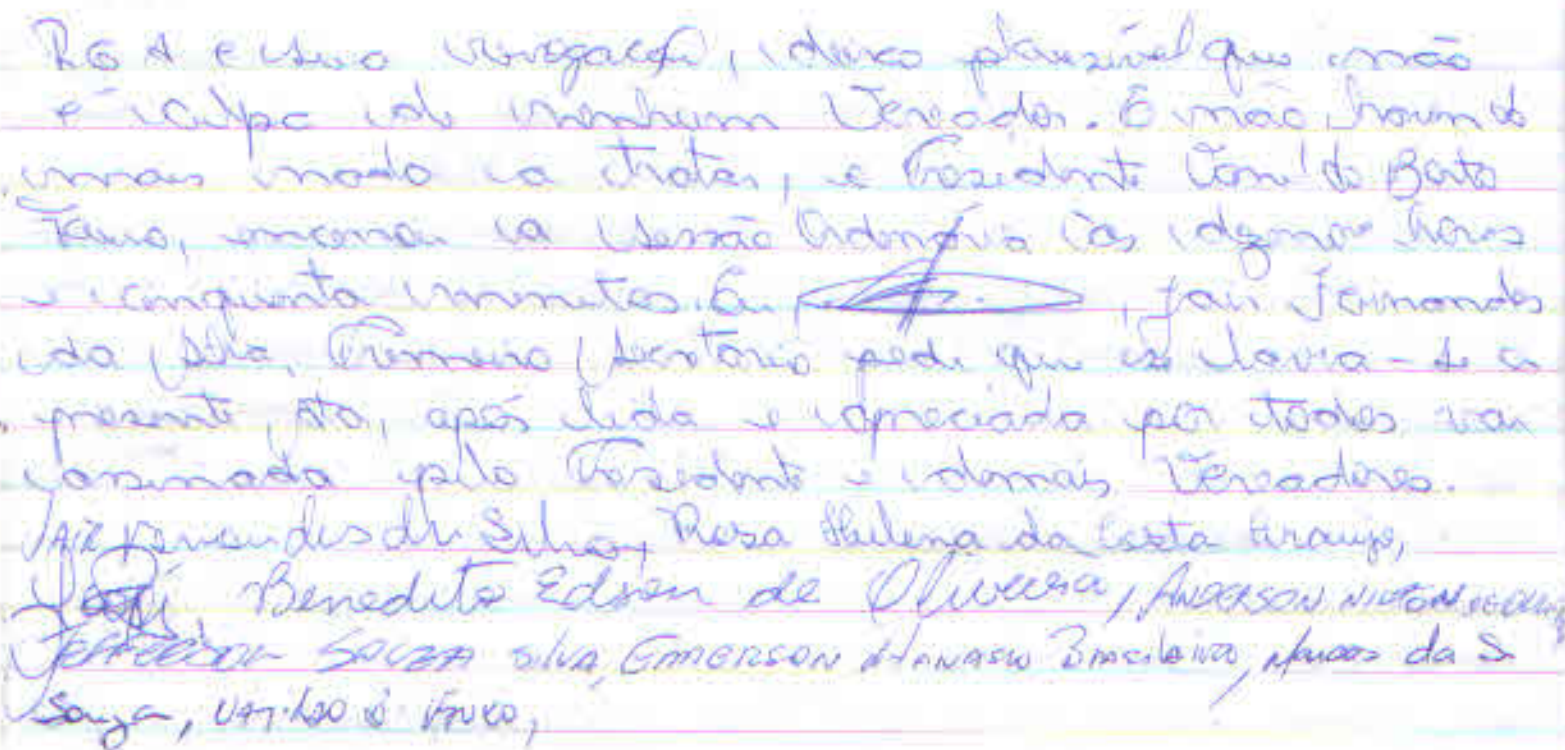 RGA e sua revogação, deixo plausível que não
é culpa de nenhum Vereador. E não havendo
mais nada a tratar, o Presidente
encerrou a Sessão Ordinária às dezenove horas
e cinquenta minutos. Eu, , Jair Fernandes
da Silva, Primeiro Secretário pede que se lavra-se a
presente Ata, após lida e apreciada por todos vai
assinada pelo Presidente e demais Vereadores.
Jair Fernandes da Silva, Rosa Helena da Costa Araujo,
José Benedito Edson de Oliveira, ANDERSON NILTON
JEFFERSON SOUZA SILVA, EMERSON BRASILEIRO, Marcos da S
Souza,